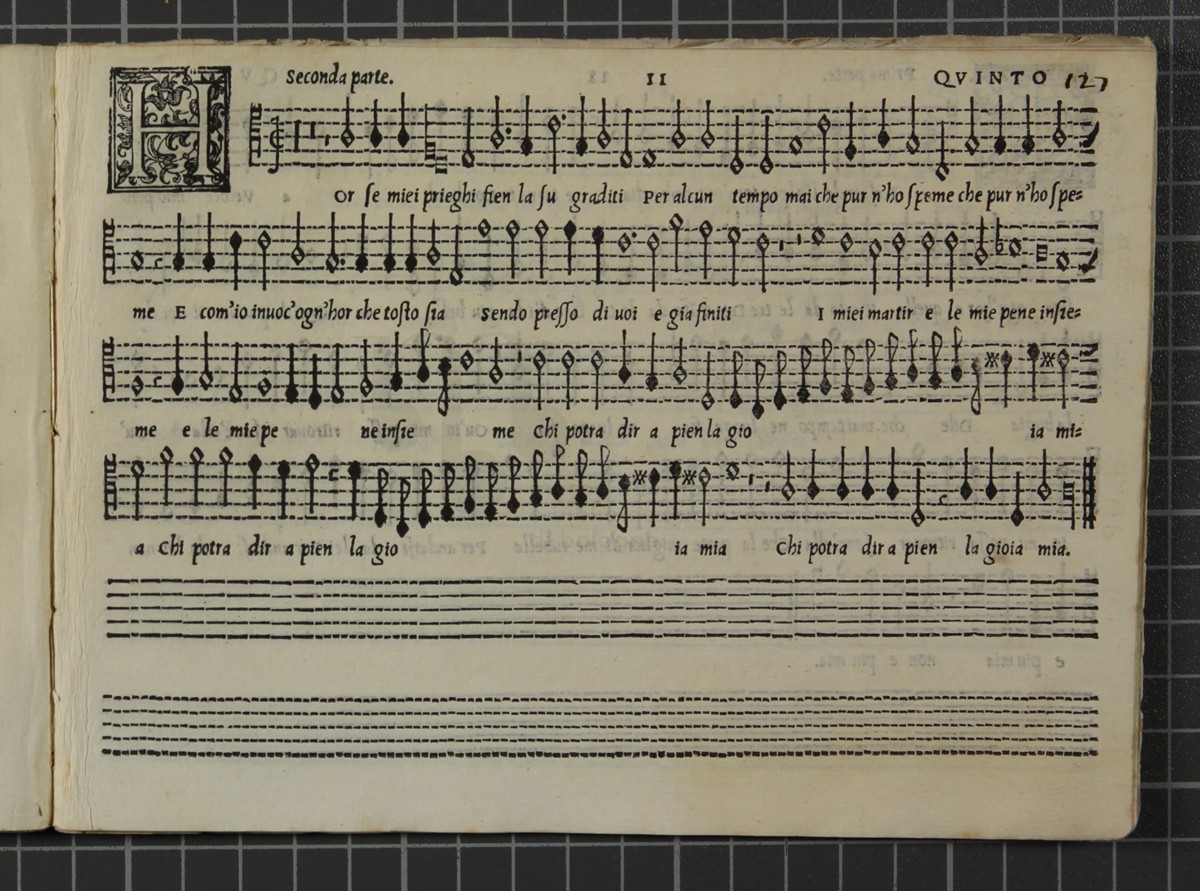 Seconda parte. 11 QVINTO 127
H Or se miei prieghi sien la su graditi Per alcun tempo mai che pur n'ho speme che pur n'ho spe=
me E com'io inuoc'ogn'hor che tosto sia Sendo presso di uoi e gia finiti I miei martir e le mie pene insie=
me e le mie pe ne insie me Chi potra dir a pien la gio ia mi=
a Chi potra dir a pien la gio ia mia Chi potra dir a pien la gioia mia.